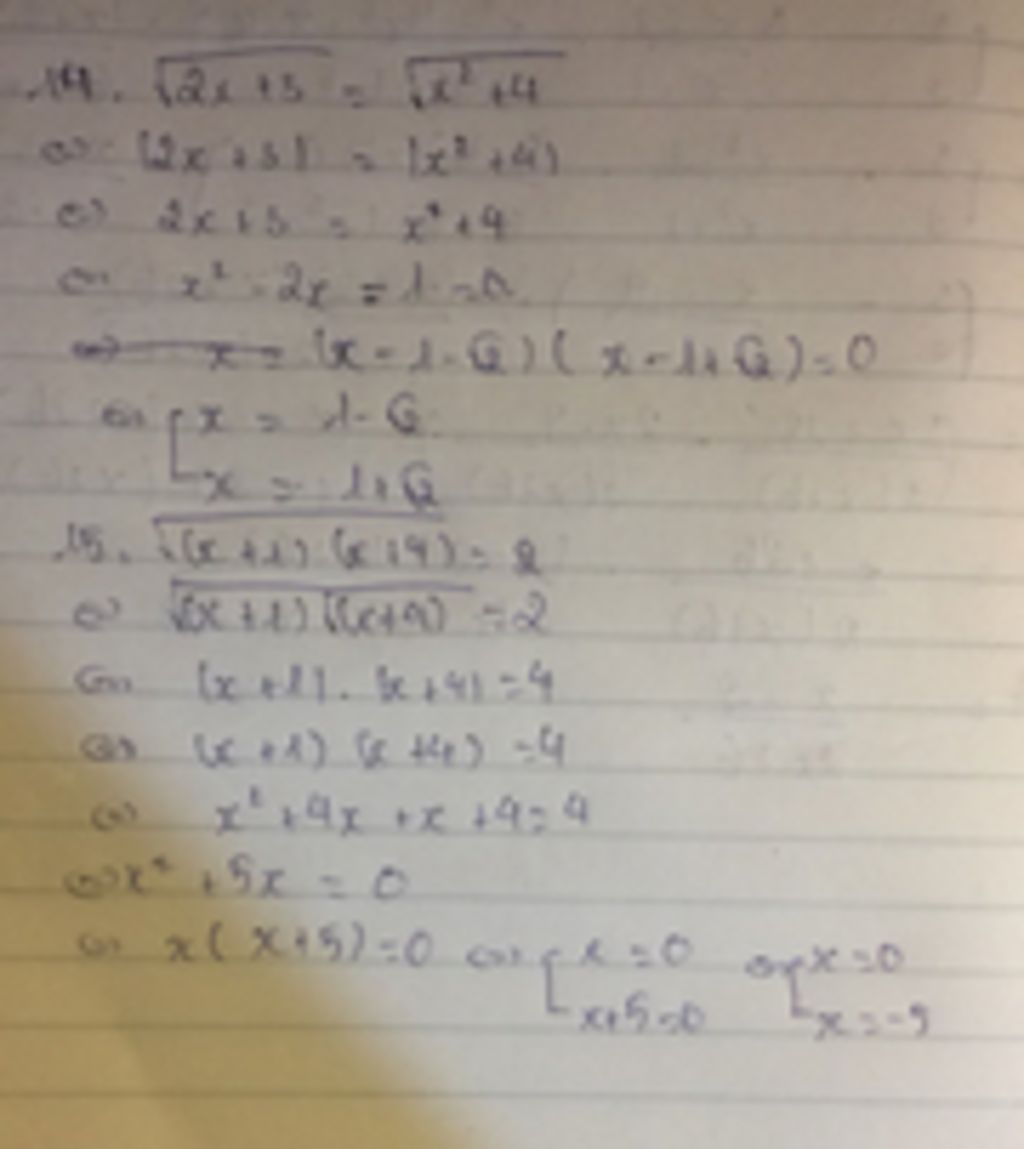 14. √(2x+5) = √(x²+4)
<=> |2x+5| = |x²+4|
<=> 2x+5 = x²+4
<=> x² - 2x = 1 = 0
x = (x-1-√2)(x-1+√2) = 0
<=> [ x = 1-√2
x = 1+√2
15. √((x+1)(x+4)) = 2
<=> √(x+1) √(x+4) = 2
<=> |x+1| . |x+4| = 4
<=> (x+1) (x+4) = 4
<=> x² + 4x + x + 4 = 4
<=> x² + 5x = 0
<=> x(x+5) = 0 <=> [ x = 0 <=> [ x = 0
x+5 = 0 x = -5